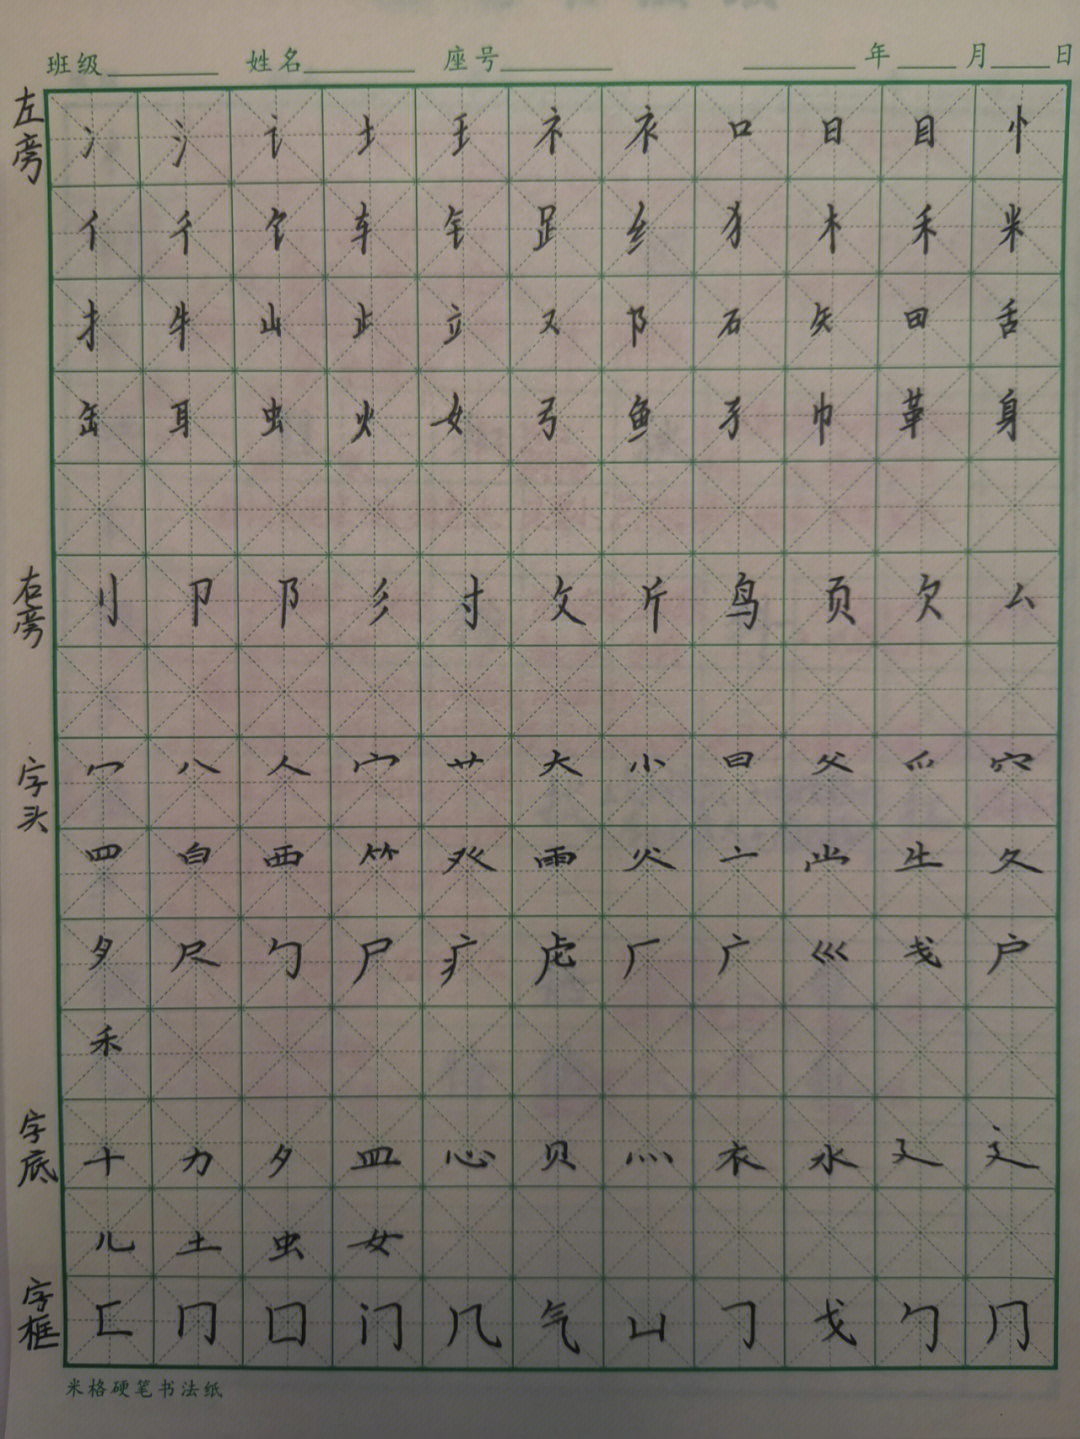 班级 姓名 座号 年 月 日
左旁 冫 氵 讠 土 王 礻 衤 口 日 目 忄
亻 彳 饣 车 钅 𧾷 纟 犭 木 禾 米
扌 牛 山 止 立 又 阝 石 矢 田 舌
缶 耳 虫 火 女 弓 鱼 孑 巾 革 身
右旁 刂 卩 阝 彡 寸 攵 斤 鸟 页 欠 厶
字头 冖 八 人 宀 艹 大 小 日 父 爫 穴
四 白 西 ⺮ 癶 雨 火 亠 龸 ⺧ 夂
夕 尺 勹 尸 疒 虍 厂 广 巛 戋 户
禾
字底 十 力 夕 皿 心 贝 灬 衣 水 廴 辶
儿 土 虫 女
字框 匚 冂 囗 门 几 气 凵 戈 勹 冂
米格硬笔书法纸